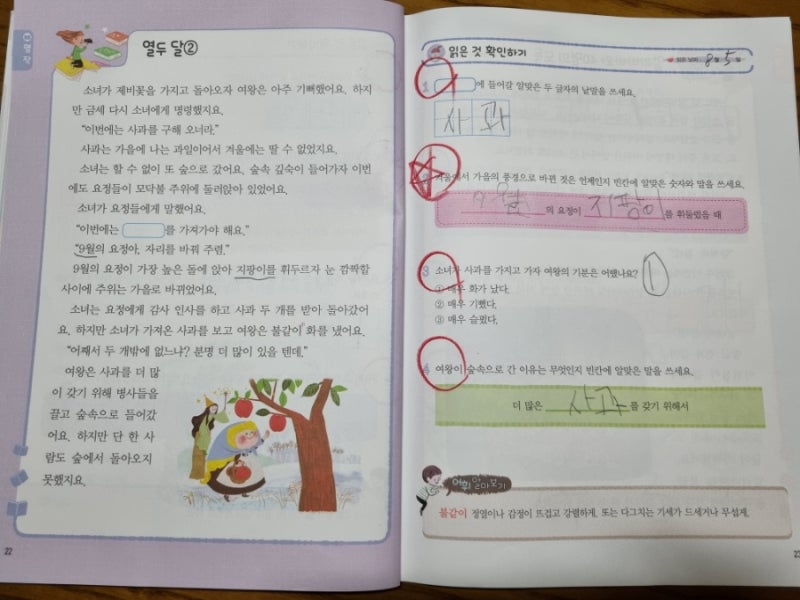 명작
열두 달②
소녀가 제비꽃을 가지고 돌아오자 여왕은 아주 기뻐했어요. 하지
만 금세 다시 소녀에게 명령했지요.
"이번에는 사과를 구해 오너라."
사과는 가을에 나는 과일이어서 겨울에는 딸 수 없었지요.
소녀는 할 수 없이 또 숲으로 갔어요. 숲속 깊숙이 들어가자 이번
에도 요정들이 모닥불 주위에 둘러앉아 있었어요.
소녀가 요정들에게 말했어요.
"이번에는 를 가져가야 해요."
"9월의 요정아, 자리를 바꿔 주렴."
9월의 요정이 가장 높은 돌에 앉아 지팡이를 휘두르자 눈 깜짝할
사이에 주위는 가을로 바뀌었어요.
소녀는 요정에게 감사 인사를 하고 사과 두 개를 받아 돌아갔어
요. 하지만 소녀가 가져온 사과를 보고 여왕은 불같이 화를 냈어요.
"어째서 두 개밖에 없느냐? 분명 더 많이 있을 텐데."
여왕은 사과를 더 많
이 갖기 위해 병사들을
끌고 숲속으로 들어갔
어요. 하지만 단 한 사
람도 숲에서 돌아오지
못했지요.
22
읽은 것 확인하기
읽은 날짜 8월 5일
1 에 들어갈 알맞은 두 글자의 낱말을 쓰세요.
사과
2 겨울에서 가을의 풍경으로 바뀐 것은 언제인지 빈칸에 알맞은 숫자와 말을 쓰세요.
9월 의 요정이 지팡이 를 휘둘렀을 때
3 소녀가 사과를 가지고 가자 여왕의 기분은 어땠나요? ①
① 매우 화가 났다.
② 매우 기뻤다.
③ 매우 슬펐다.
4 여왕이 숲속으로 간 이유는 무엇인지 빈칸에 알맞은 말을 쓰세요.
더 많은 사과 를 갖기 위해서
어휘 알아보기
불같이 정열이나 감정이 뜨겁고 강렬하게. 또는 다그치는 기세가 드세거나 무섭게.
23